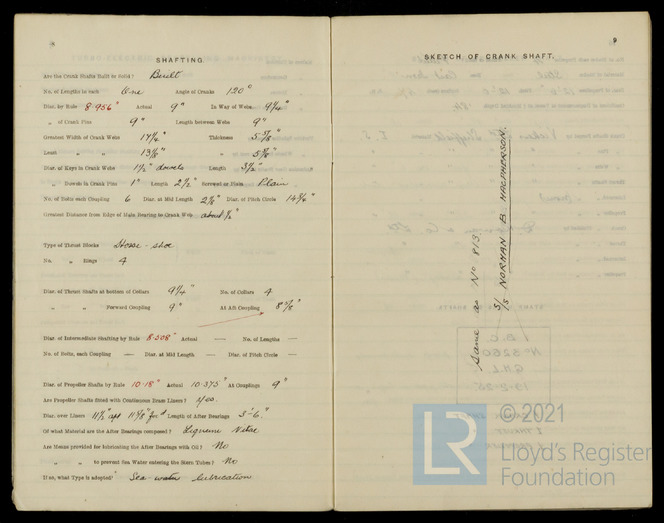 SHAFTING.
Are the Crank Shafts Built or Solid? Built
No. of Lengths in each One Angle of Cranks 120°
Diar. by Rule 8.956" Actual 9" In Way of Webs 9¼"
„ of Crank Pins 9" Length between Webs 9"
Greatest Width of Crank Webs 17¼" Thickness 5 5/8"
Least „ „ 13 5/8" „ 5 5/8"
Diar. of Keys in Crank Webs 1½" dowels Length 3½"
„ Dowels in Crank Pins 1" Length 2½" Screwed or Plain Plain
No. of Bolts each Coupling 6 Diar. at Mid Length 2 5/8" Diar. of Pitch Circle 14¾"
Greatest Distance from Edge of Main Bearing to Crank Web about ½"
Type of Thrust Blocks Horse-shoe
No. „ Rings 4
Diar. of Thrust Shafts at bottom of Collars 9¼" No. of Collars 4
„ „ Forward Coupling 9" At Aft Coupling 8 5/8"
Diar. of Intermediate Shafting by Rule 8.508" Actual — No. of Lengths —
No. of Bolts, each Coupling — Diar. at Mid Length — Diar. of Pitch Circle —
Diar. of Propeller Shafts by Rule 10.18" Actual 10.375" At Couplings 9"
Are Propeller Shafts fitted with Continuous Brass Liners? Yes.
Diar. over Liners 11½" aft 11 5/8" for'd Length of After Bearings 3'-6"
Of what Material are the After Bearings composed? Lignum Vitae
Are Means provided for lubricating the After Bearings with Oil? No
„ „ to prevent Sea Water entering the Stern Tubes? No
If so, what Type is adopted? Sea water lubrication
9
SKETCH OF CRANK SHAFT.
Same as No 813.
S/S NORMAN B. MACPHERSON.
LR
© 2021
Lloyd's Register
Foundation